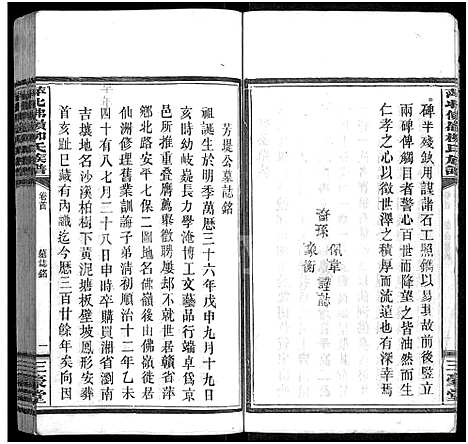 萍北佛嶺柳氏族譜
碑半殘蝕用謀諸石工照鐫以易其故前後豎立
兩碑俾觸目者百世而降望之皆油然而生
仁孝之心於以徵世澤之積厚而流遠也有
深幸焉
裔孫
佩卓
象衡
謹誌
芳堤公墓誌銘
祖誕生於明季萬歷三十六年戊申九月十九日
亥時幼岐嶷業長力學淹博工文藝品行端卓為京
邑所推重叠膺薦東徵聘屢却不就世居贛省萍
鄉北路安平七保二圖地名佛嶺後由佛嶺徙居
仙洲修理舊業訓誨子弟清初順治十二年乙未
四十有八七月二十八日未時卒購買湘省瀏
吉壤地名沙溪柏樹下黄泥塘板壁坡鳳形安葬
首亥趾巳有内誌迄今歷三百廿餘年矣向因
萍北佛嶺柳氏族譜
卷首
墓誌銘
一
三豪堂